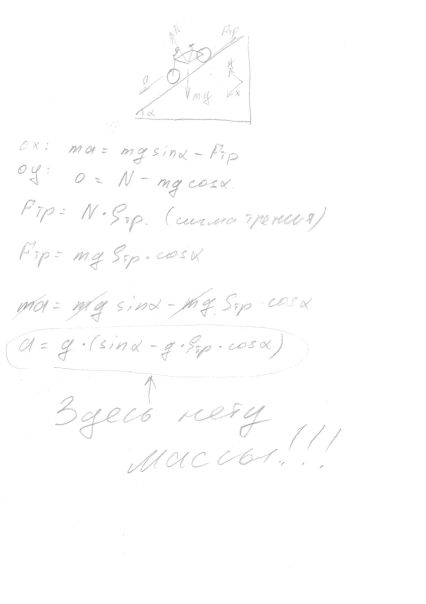 N
Fтр
a
y
x
mg
α
ox: ma = mg sinα - Fтр
oy: 0 = N - mg cosα.
Fтр = N · ςтр. (сигма трения)
Fтр = mg ςтр · cosα
ma = mg sinα - mg ςтр · cosα
a = g · (sinα - g · ςтр · cosα)
Здесь нету
массы!!!